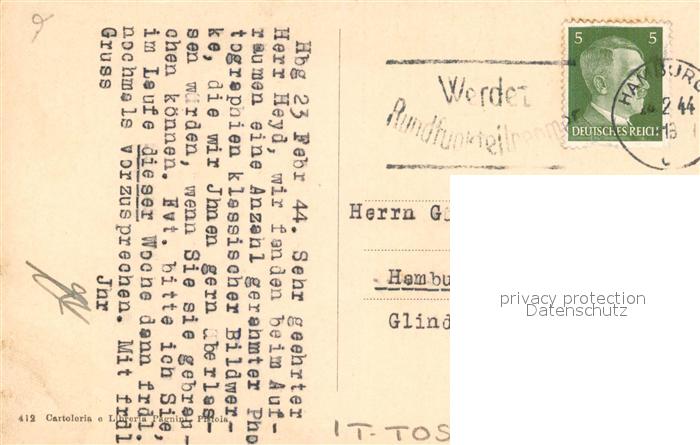 Hbg 23 Febr 44. Sehr geehrter
Herr Heyd, wir fanden beim Auf-
raumen eine Anzahl gerahmter Pho
tographien klassischer Bildwer-
ke, die wir Jhnen gern uberlas-
sen wurden, wenn Sie sie gebrau-
chen können. Evt. bitte ich Sie,
im Laufe dieser Woche dann frdl.
nochmals vorzusprechen. Mit frdl
Gruss
Jhr
412 Cartoleria e Libreria Pagnini, Pistoia
Werdet
Rundfunkteilnehmer
5 5
DEUTSCHES REICH
HAMBURG
2 44
Herrn
Hambu
Glind
privacy protection
Datenschutz
IT-TOS